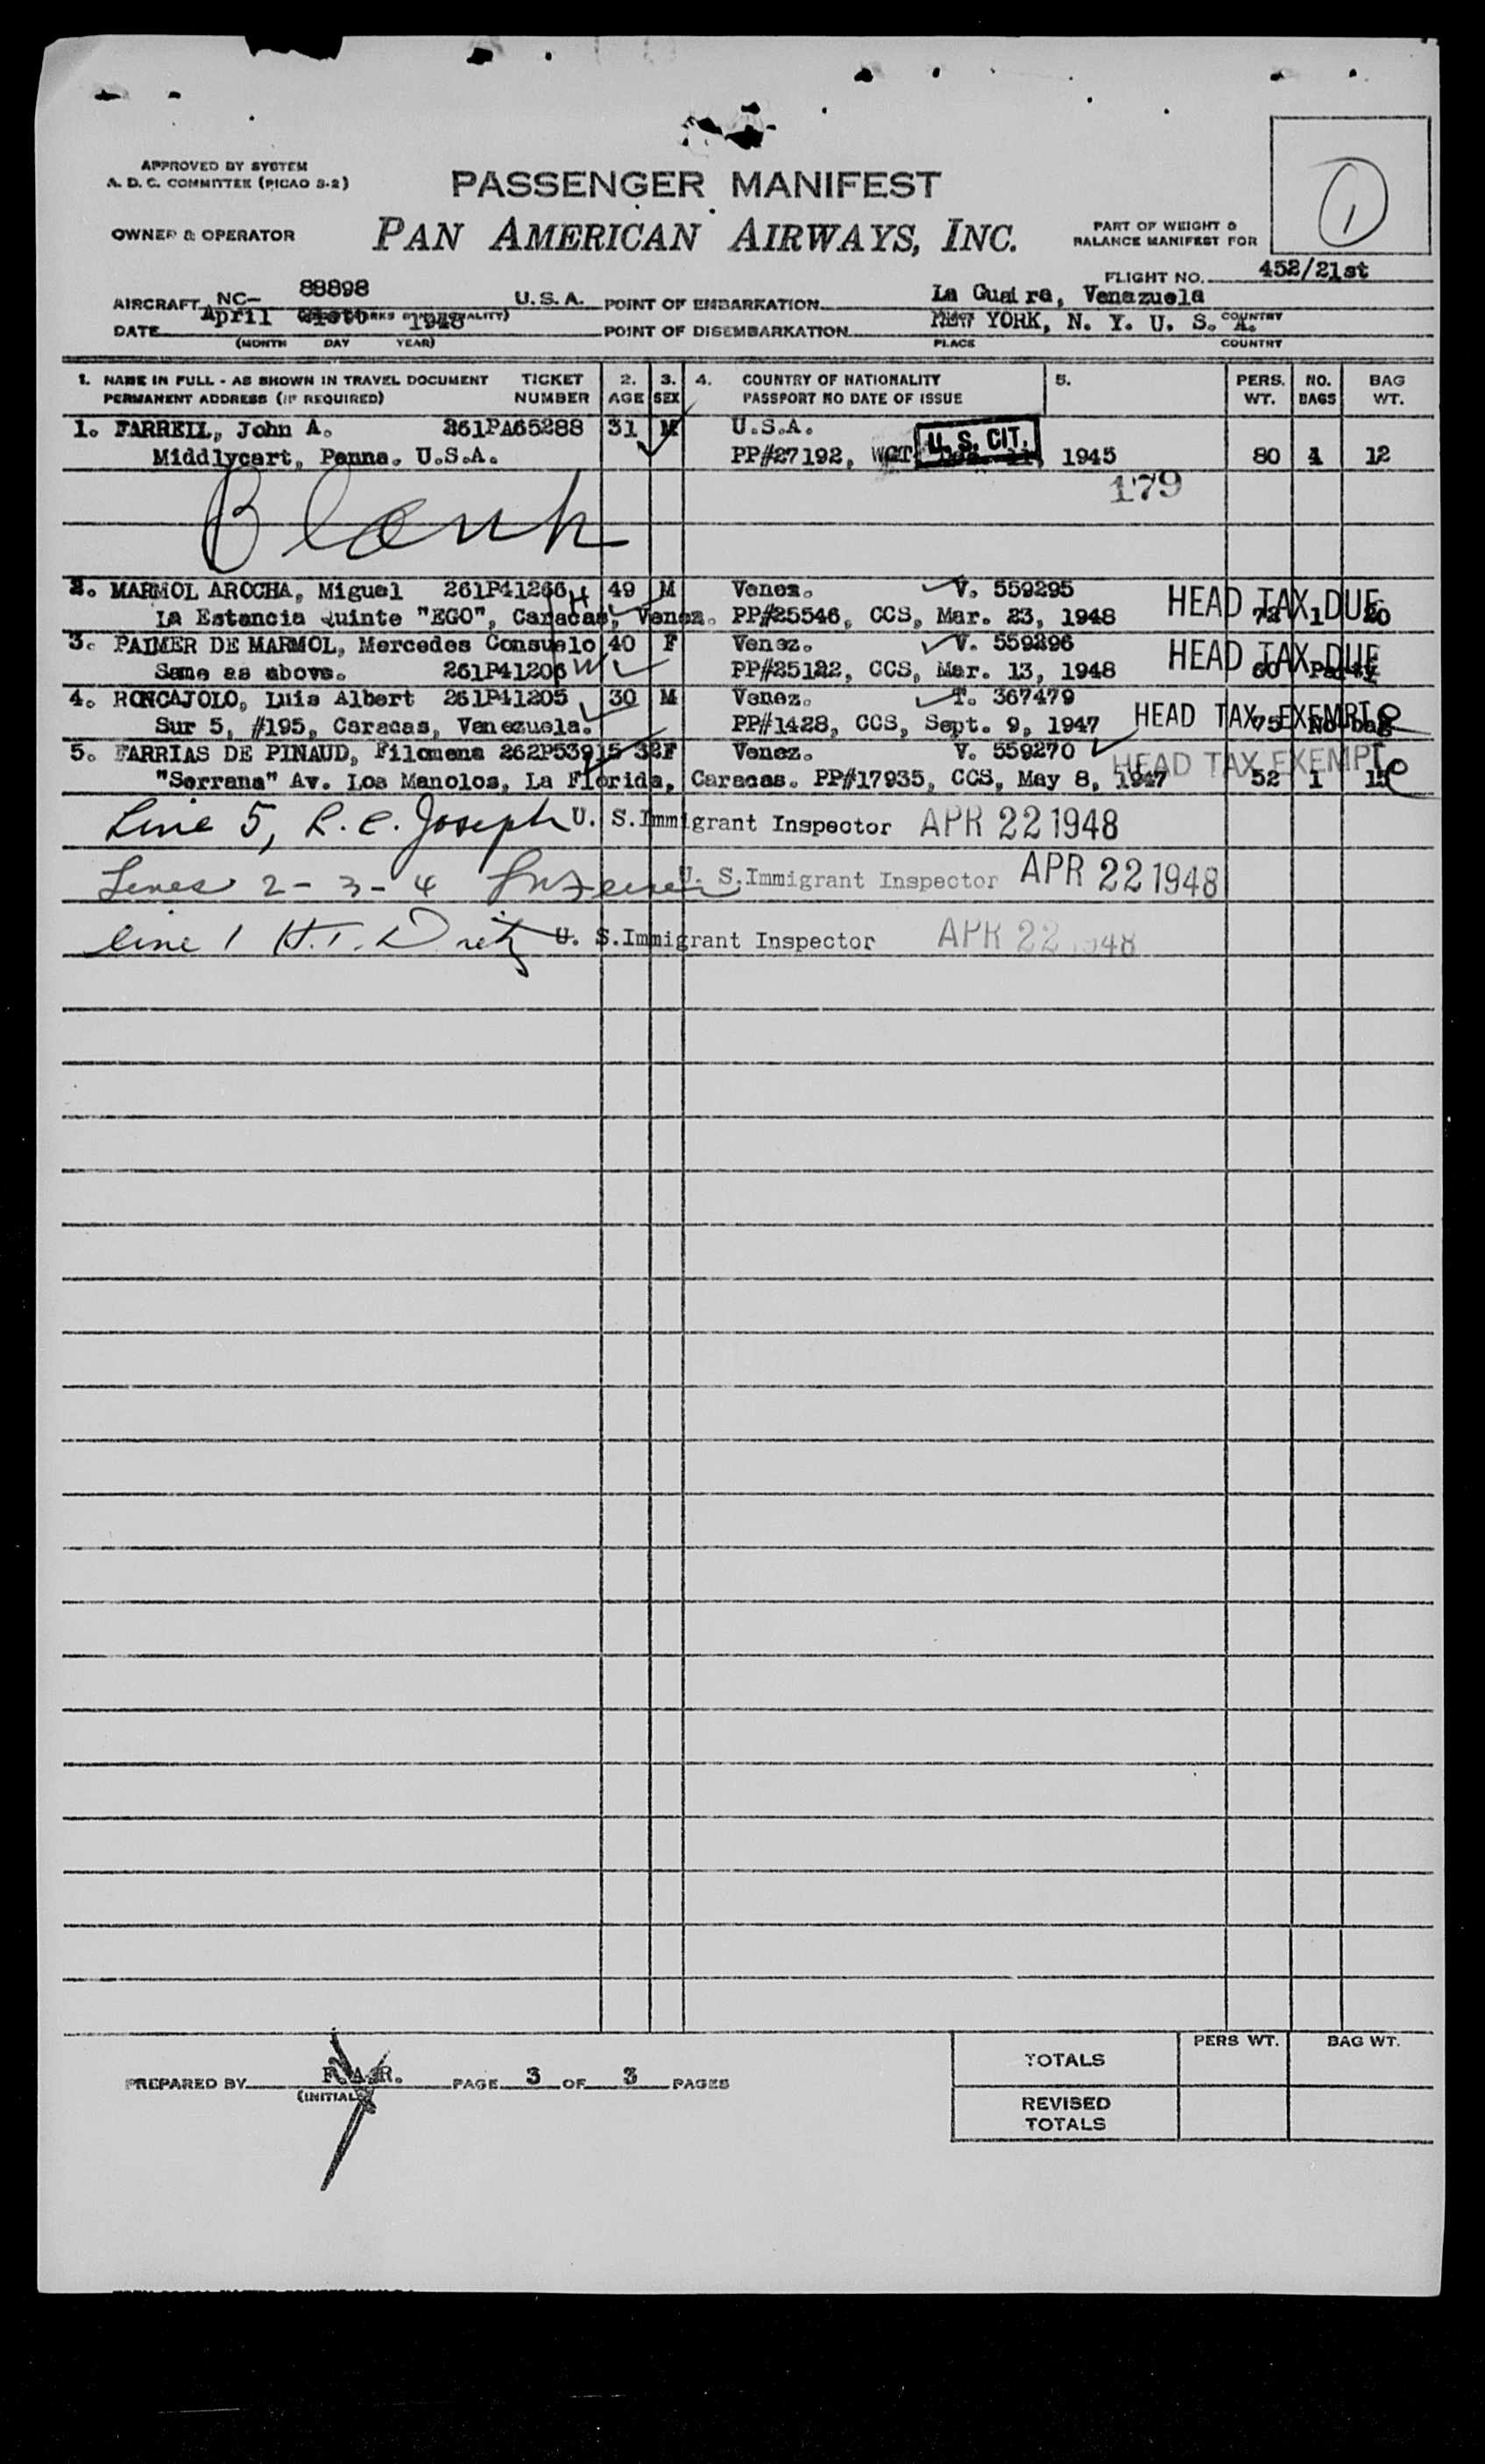 APPROVED BY SYSTEM
A. D. C. COMMITTEE (PICAO S-2)
PASSENGER MANIFEST
1
OWNER & OPERATOR
PAN AMERICAN AIRWAYS, INC.
PART OF WEIGHT &
BALANCE MANIFEST FOR
FLIGHT NO. 452/21st
AIRCRAFT NC- 88898 U.S.A. POINT OF EMBARKATION La Guaira, Venezuela
DATE April 21st 1948 POINT OF DISEMBARKATION NEW YORK, N. Y. U. S. A.
(MONTH DAY YEAR) PLACE COUNTRY
1. NAME IN FULL - AS SHOWN IN TRAVEL DOCUMENT TICKET 2. 3. 4. COUNTRY OF NATIONALITY 5. PERS. NO. BAG
PERMANENT ADDRESS (IF REQUIRED) NUMBER AGE SEX PASSPORT NO DATE OF ISSUE WT. BAGS WT.
1. FARRELL, John A. 261PA65288 31 M U.S.A.
Middlycart, Penna. U.S.A. PP#27192, U. S. CIT. 1945 80 1 12
179
Blank
2. MARMOL AROCHA, Miguel 261P41266 49 M Venez. V. 559295 HEAD TAX DUE
La Estancia Quinte "EGO", Caracas, Venez. PP#25546, CCS, Mar. 23, 1948 72 1 20
3. PALMER DE MARMOL, Mercedes Consuelo 40 F Venez. V. 559296 HEAD TAX DUE
Same as above. 261P41206 PP#25122, CCS, Mar. 13, 1948 60 Party
4. RONCAJOLO, Luis Albert 261P41205 30 M Venez. T. 367479
Sur 5, #195, Caracas, Venezuela. PP#1428, CCS, Sept. 9, 1947 HEAD TAX EXEMPT 75 No bag
5. FARRIAS DE PINAUD, Filomena 262P53915 32F Venez. V. 559270 HEAD TAX EXEMPT
"Serrana" Av. Los Manolos, La Florida, Caracas. PP#17935, CCS, May 8, 1947 52 1 15
Line 5, R. C. Joseph U. S. Immigrant Inspector APR 22 1948
Lines 2-3-4 U. S. Immigrant Inspector APR 22 1948
line 1 H. T. U. S. Immigrant Inspector APR 22 1948
PERS WT. BAG WT.
TOTALS
PREPARED BY R. PAGE 3 OF 3 PAGES
(INITIALS)
REVISED
TOTALS